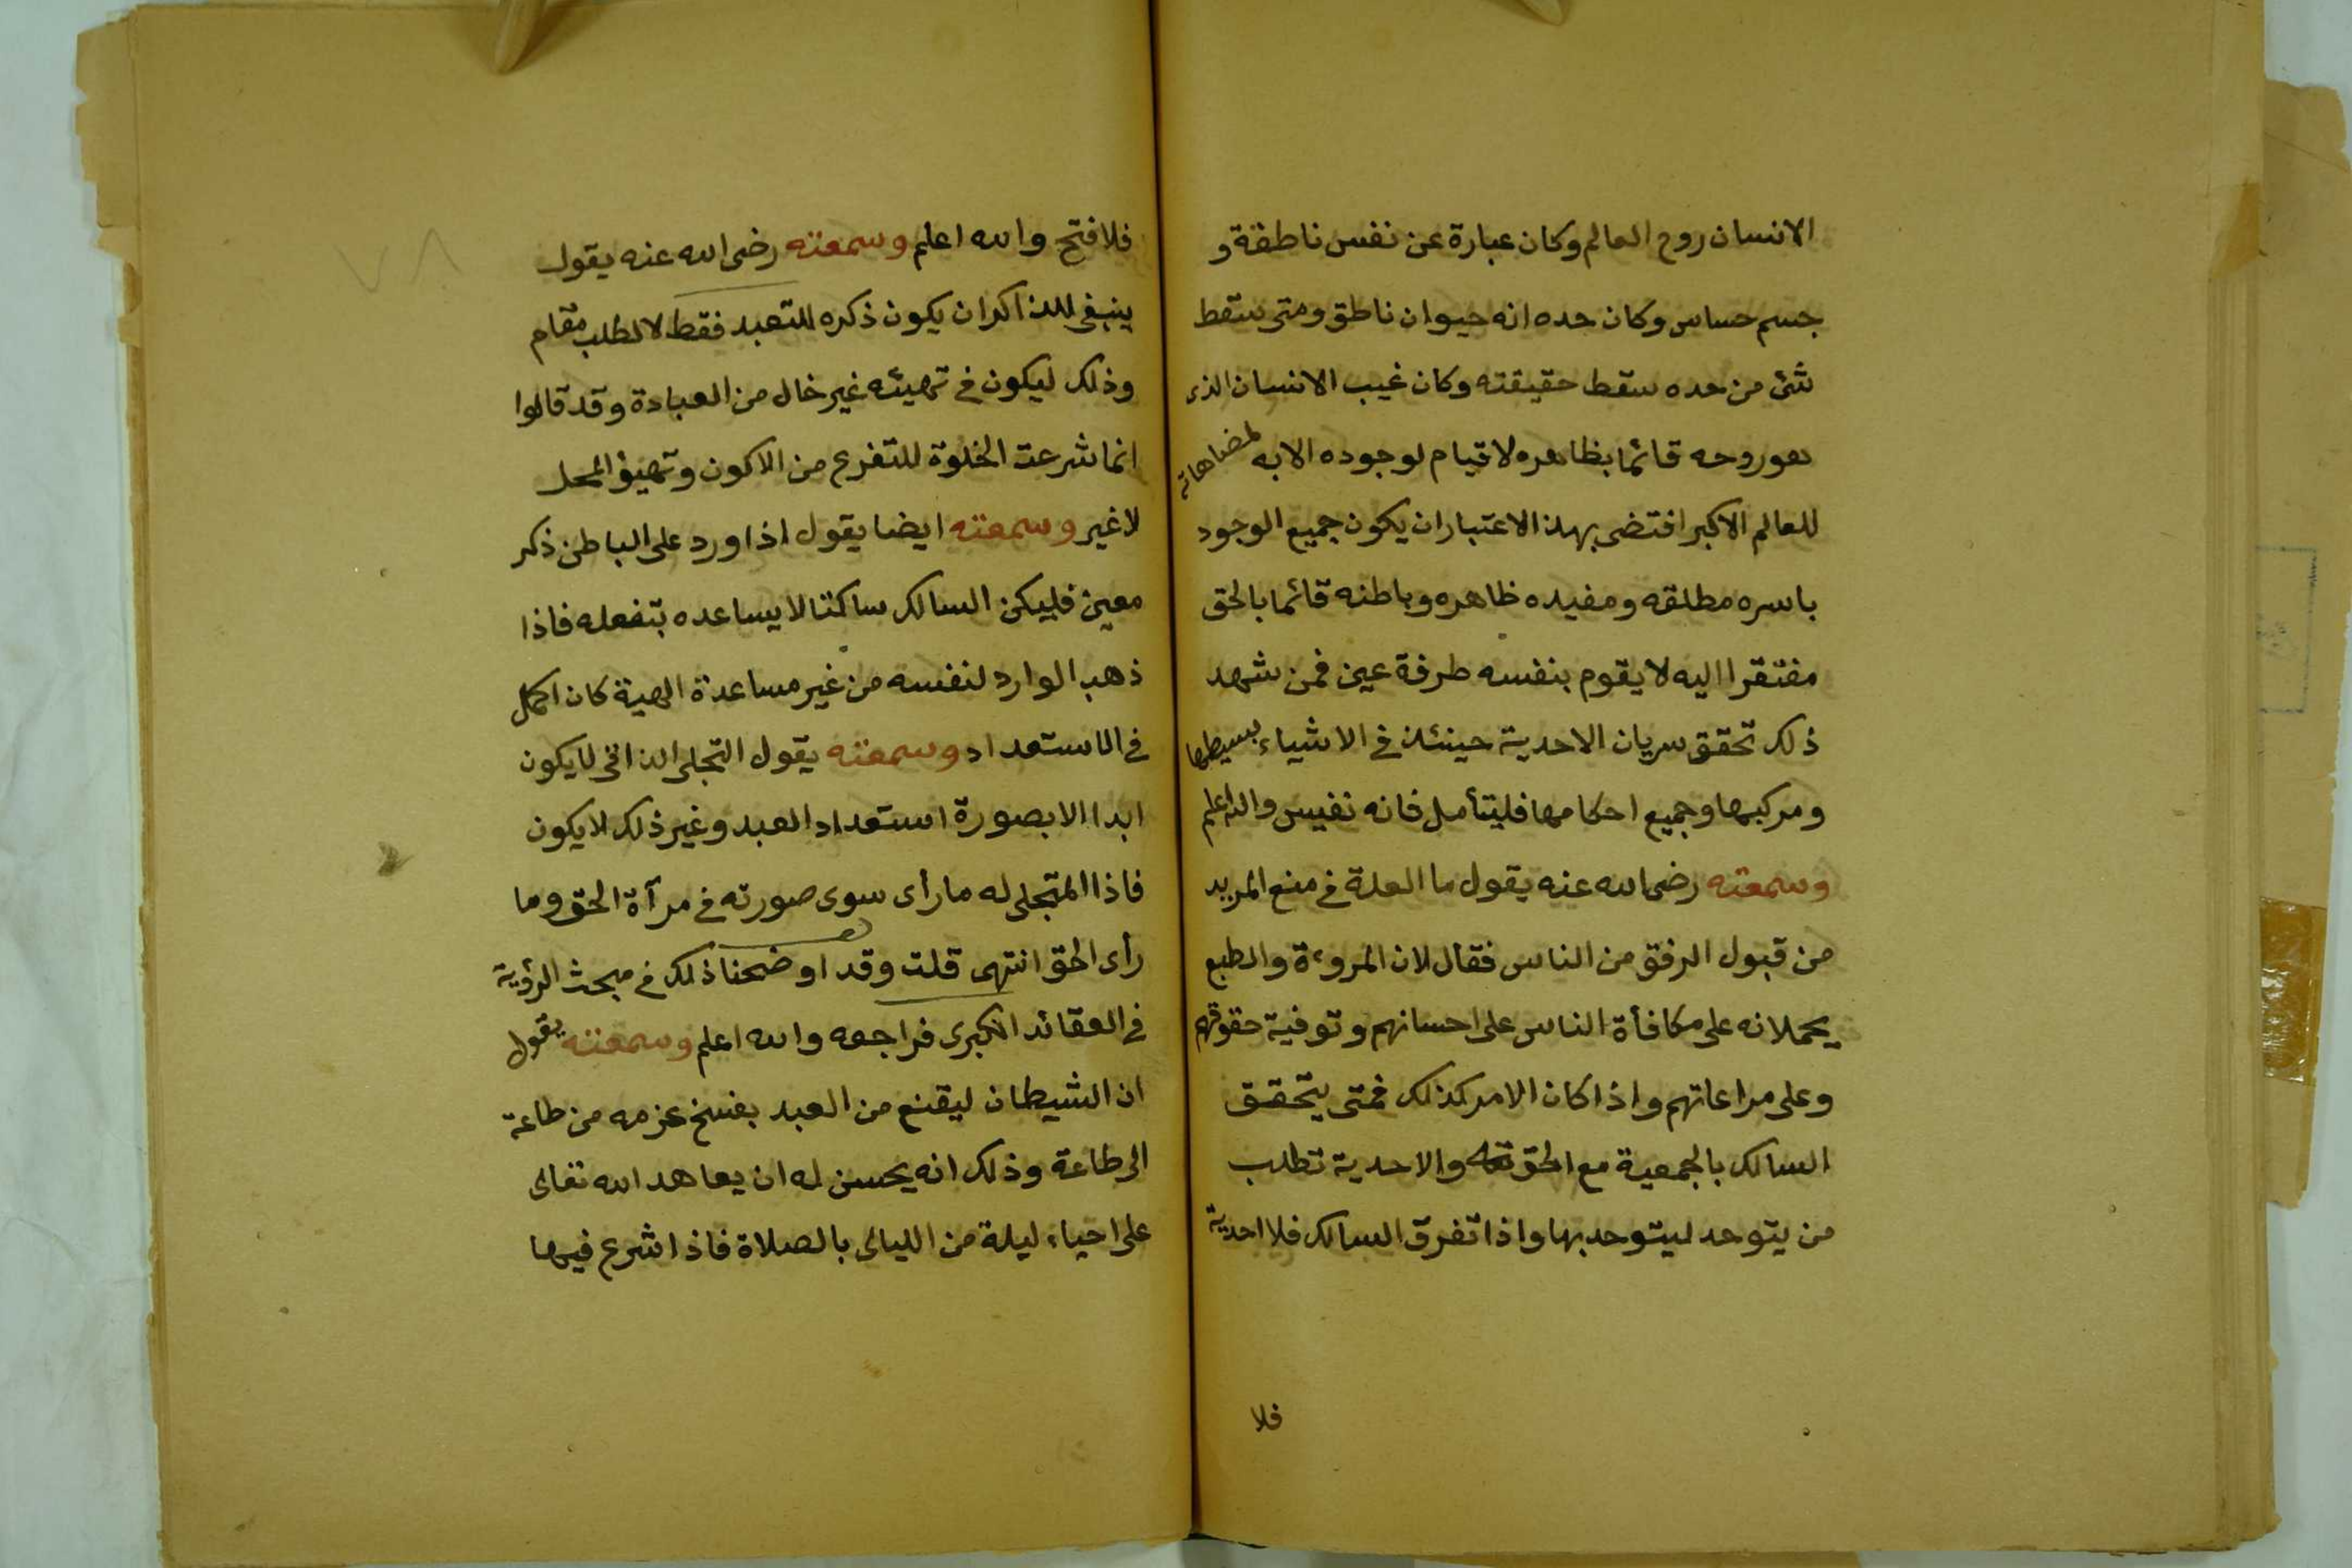 الانسان روح العالم وكان عبارة عن نفس ناطقة و
جسم حساس وكان حده انه حيوان ناطق ومتى سقط
شئ من حده سقط حقيقته وكان غيب الانسان الذى
هو روحه قائما بظاهره لا قيام لوجوده الا به لمضاهاته
للعالم الاكبر اقتضى بهذا الاعتبار ان يكون جميع الوجود
باسره مطلقه ومفيده ظاهره وباطنه قائما بالحق
مفتقرا اليه لا يقوم بنفسه طرفة عين فمن شهد
ذلك تحقق سريان الاحدية حينئذ في الاشياء بسيطها
ومركبها وجميع احكامها فليتأمل فانه نفيس والله اعلم
وسمعته رضى الله عنه يقول ما العلة في منع المريد
من قبول الرفق من الناس فقال لان المروءة والطبع
يحملانه على مكافأة الناس على احسانهم وتوفية حقوقهم
وعلى مراعاتهم واذا كان الامر كذلك فمتى يتحقق
السالك بالجمعية مع الحق والاحدية تطلب
من يتوحد ليتوحد بها واذا تفرق السالك فلا احدية
فلا
فلا فتح والله اعلم وسمعته رضى الله عنه يقول
ينبغى للذاكر ان يكون ذكره للتعبد فقط لا لطلب مقام
وذلك ليكون في تهيئه غير خال من العبادة وقد قالوا
انما شرعت الخلوة للتفرغ من الاكون وتهيؤ المحل
لا غير وسمعته ايضا يقول اذا ورد على الباطن ذكر
معين فليكن السالك ساكتا لا يساعده بتفعله فاذا
ذهب الوارد لنفسه من غير مساعدة الهية كان اكمل
في الاستعداد وسمعته يقول التجلى الذاتى لا يكون
ابدا الا بصورة استعداد العبد وغير ذلك لا يكون
فاذا المتجلى له ما رأى سوى صورته في مرآة الحق وما
رأى الحق انتهى قلت وقد اوضحنا ذلك في مبحث الرؤية
في العقائد الكبرى فراجعه والله اعلم وسمعته يقول
ان الشيطان ليقنع من العبد بفسخ عزمه من طاعة
الى طاعة وذلك انه يحسن له ان يعاهد الله تعالى
على احياء ليلة من الليالى بالصلاة فاذا شرع فيها
٧٨